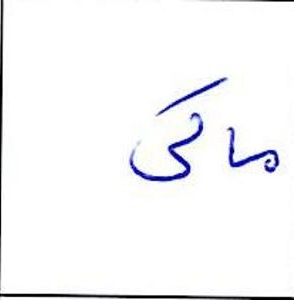 ماکی